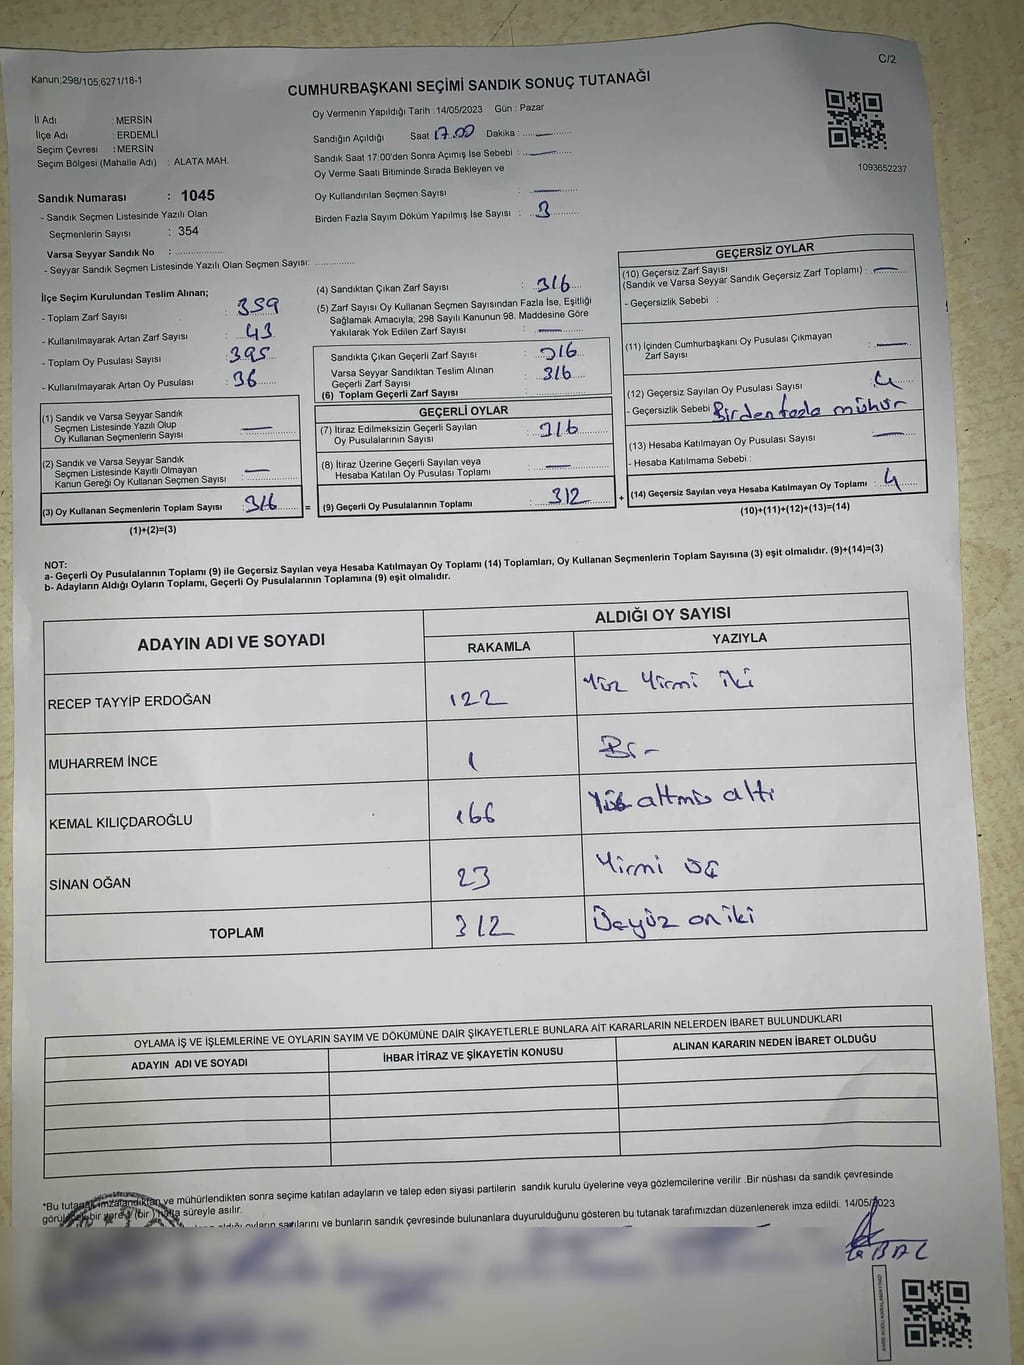 Kanun;298/105,6271/18-1
C/2
CUMHURBAŞKANI SEÇİMİ SANDIK SONUÇ TUTANAĞI
İl Adı : MERSİN
İlçe Adı : ERDEMLİ
Seçim Çevresi : MERSİN
Seçim Bölgesi (Mahalle Adı) : ALATA MAH.
Oy Vermenin Yapıldığı Tarih : 14/05/2023 Gün : Pazar
Sandığın Açıldığı Saat 17.00 Dakika : —
Sandık Saat 17:00'den Sonra Açımış İse Sebebi : —
Oy Verme Saati Bitiminde Sırada Bekleyen ve
Oy Kullandırılan Seçmen Sayısı : —
Birden Fazla Sayım Döküm Yapılmış İse Sayısı : 3
1093652237
Sandık Numarası : 1045
- Sandık Seçmen Listesinde Yazılı Olan
Seçmenlerin Sayısı : 354
Varsa Seyyar Sandık No : ..................
- Seyyar Sandık Seçmen Listesinde Yazılı Olan Seçmen Sayısı: ..............
İlçe Seçim Kurulundan Teslim Alınan;
- Toplam Zarf Sayısı : 359
- Kullanılmayarak Artan Zarf Sayısı : 43
- Toplam Oy Pusulası Sayısı : 395
- Kullanılmayarak Artan Oy Pusulası : 36
(1) Sandık ve Varsa Seyyar Sandık
Seçmen Listesinde Yazılı Olup
Oy Kullanan Seçmenlerin Sayısı : —
(2) Sandık ve Varsa Seyyar Sandık
Seçmen Listesinde Kayıtlı Olmayan
Kanun Gereği Oy Kullanan Seçmen Sayısı : —
(3) Oy Kullanan Seçmenlerin Toplam Sayısı : 316
(1)+(2)=(3)
(4) Sandıktan Çıkan Zarf Sayısı : 316
(5) Zarf Sayısı Oy Kullanan Seçmen Sayısından Fazla İse, Eşitliği
Sağlamak Amacıyla; 298 Sayılı Kanunun 98. Maddesine Göre
Yakılarak Yok Edilen Zarf Sayısı : —
Sandıkta Çıkan Geçerli Zarf Sayısı : 316
Varsa Seyyar Sandıktan Teslim Alınan
Geçerli Zarf Sayısı : 316
(6) Toplam Geçerli Zarf Sayısı
GEÇERLİ OYLAR
(7) İtiraz Edilmeksizin Geçerli Sayılan
Oy Pusulalarının Sayısı : 316
(8) İtiraz Üzerine Geçerli Sayılan veya
Hesaba Katılan Oy Pusulası Toplamı : —
= (9) Geçerli Oy Pusulalarının Toplamı : 312
GEÇERSİZ OYLAR
(10) Geçersiz Zarf Sayısı
(Sandık ve Varsa Seyyar Sandık Geçersiz Zarf Toplamı) : —
- Geçersizlik Sebebi :
(11) İçinden Cumhurbaşkanı Oy Pusulası Çıkmayan
Zarf Sayısı : —
(12) Geçersiz Sayılan Oy Pusulası Sayısı : 4
- Geçersizlik Sebebi Birden fazla mühür
(13) Hesaba Katılmayan Oy Pusulası Sayısı : —
- Hesaba Katılmama Sebebi :
+ (14) Geçersiz Sayılan veya Hesaba Katılmayan Oy Toplamı : 4
(10)+(11)+(12)+(13)=(14)
NOT:
a- Geçerli Oy Pusulalarının Toplamı (9) ile Geçersiz Sayılan veya Hesaba Katılmayan Oy Toplamı (14) Toplamları, Oy Kullanan Seçmenlerin Toplam Sayısına (3) eşit olmalıdır. (9)+(14)=(3)
b- Adayların Aldığı Oyların Toplamı, Geçerli Oy Pusulalarının Toplamına (9) eşit olmalıdır.
ADAYIN ADI VE SOYADI
ALDIĞI OY SAYISI
RAKAMLA YAZIYLA
RECEP TAYYİP ERDOĞAN 122 Yüz Yirmi iki
MUHARREM İNCE 1 Bir
KEMAL KILIÇDAROĞLU 166 Yüz altmış altı
SİNAN OĞAN 23 Yirmi üç
TOPLAM 312 Üçyüz oniki
OYLAMA İŞ VE İŞLEMLERİNE VE OYLARIN SAYIM VE DÖKÜMÜNE DAİR ŞİKAYETLERLE BUNLARA AİT KARARLARIN NELERDEN İBARET BULUNDUKLARI
ADAYIN ADI VE SOYADI İHBAR İTİRAZ VE ŞİKAYETİN KONUSU ALINAN KARARIN NEDEN İBARET OLDUĞU
*Bu tutanak imzalandıktan ve mühürlendikten sonra seçime katılan adayların ve talep eden siyasi partilerin sandık kurulu üyelerine veya gözlemcilerine verilir .Bir nüshası da sandık çevresinde
görülebilen bir yere 1 (bir ) hafta süreyle asılır.
oyların sayılarını ve bunların sandık çevresinde bulunanlara duyurulduğunu gösteren bu tutanak tarafımızdan düzenlenerek imza edildi. 14/05/2023